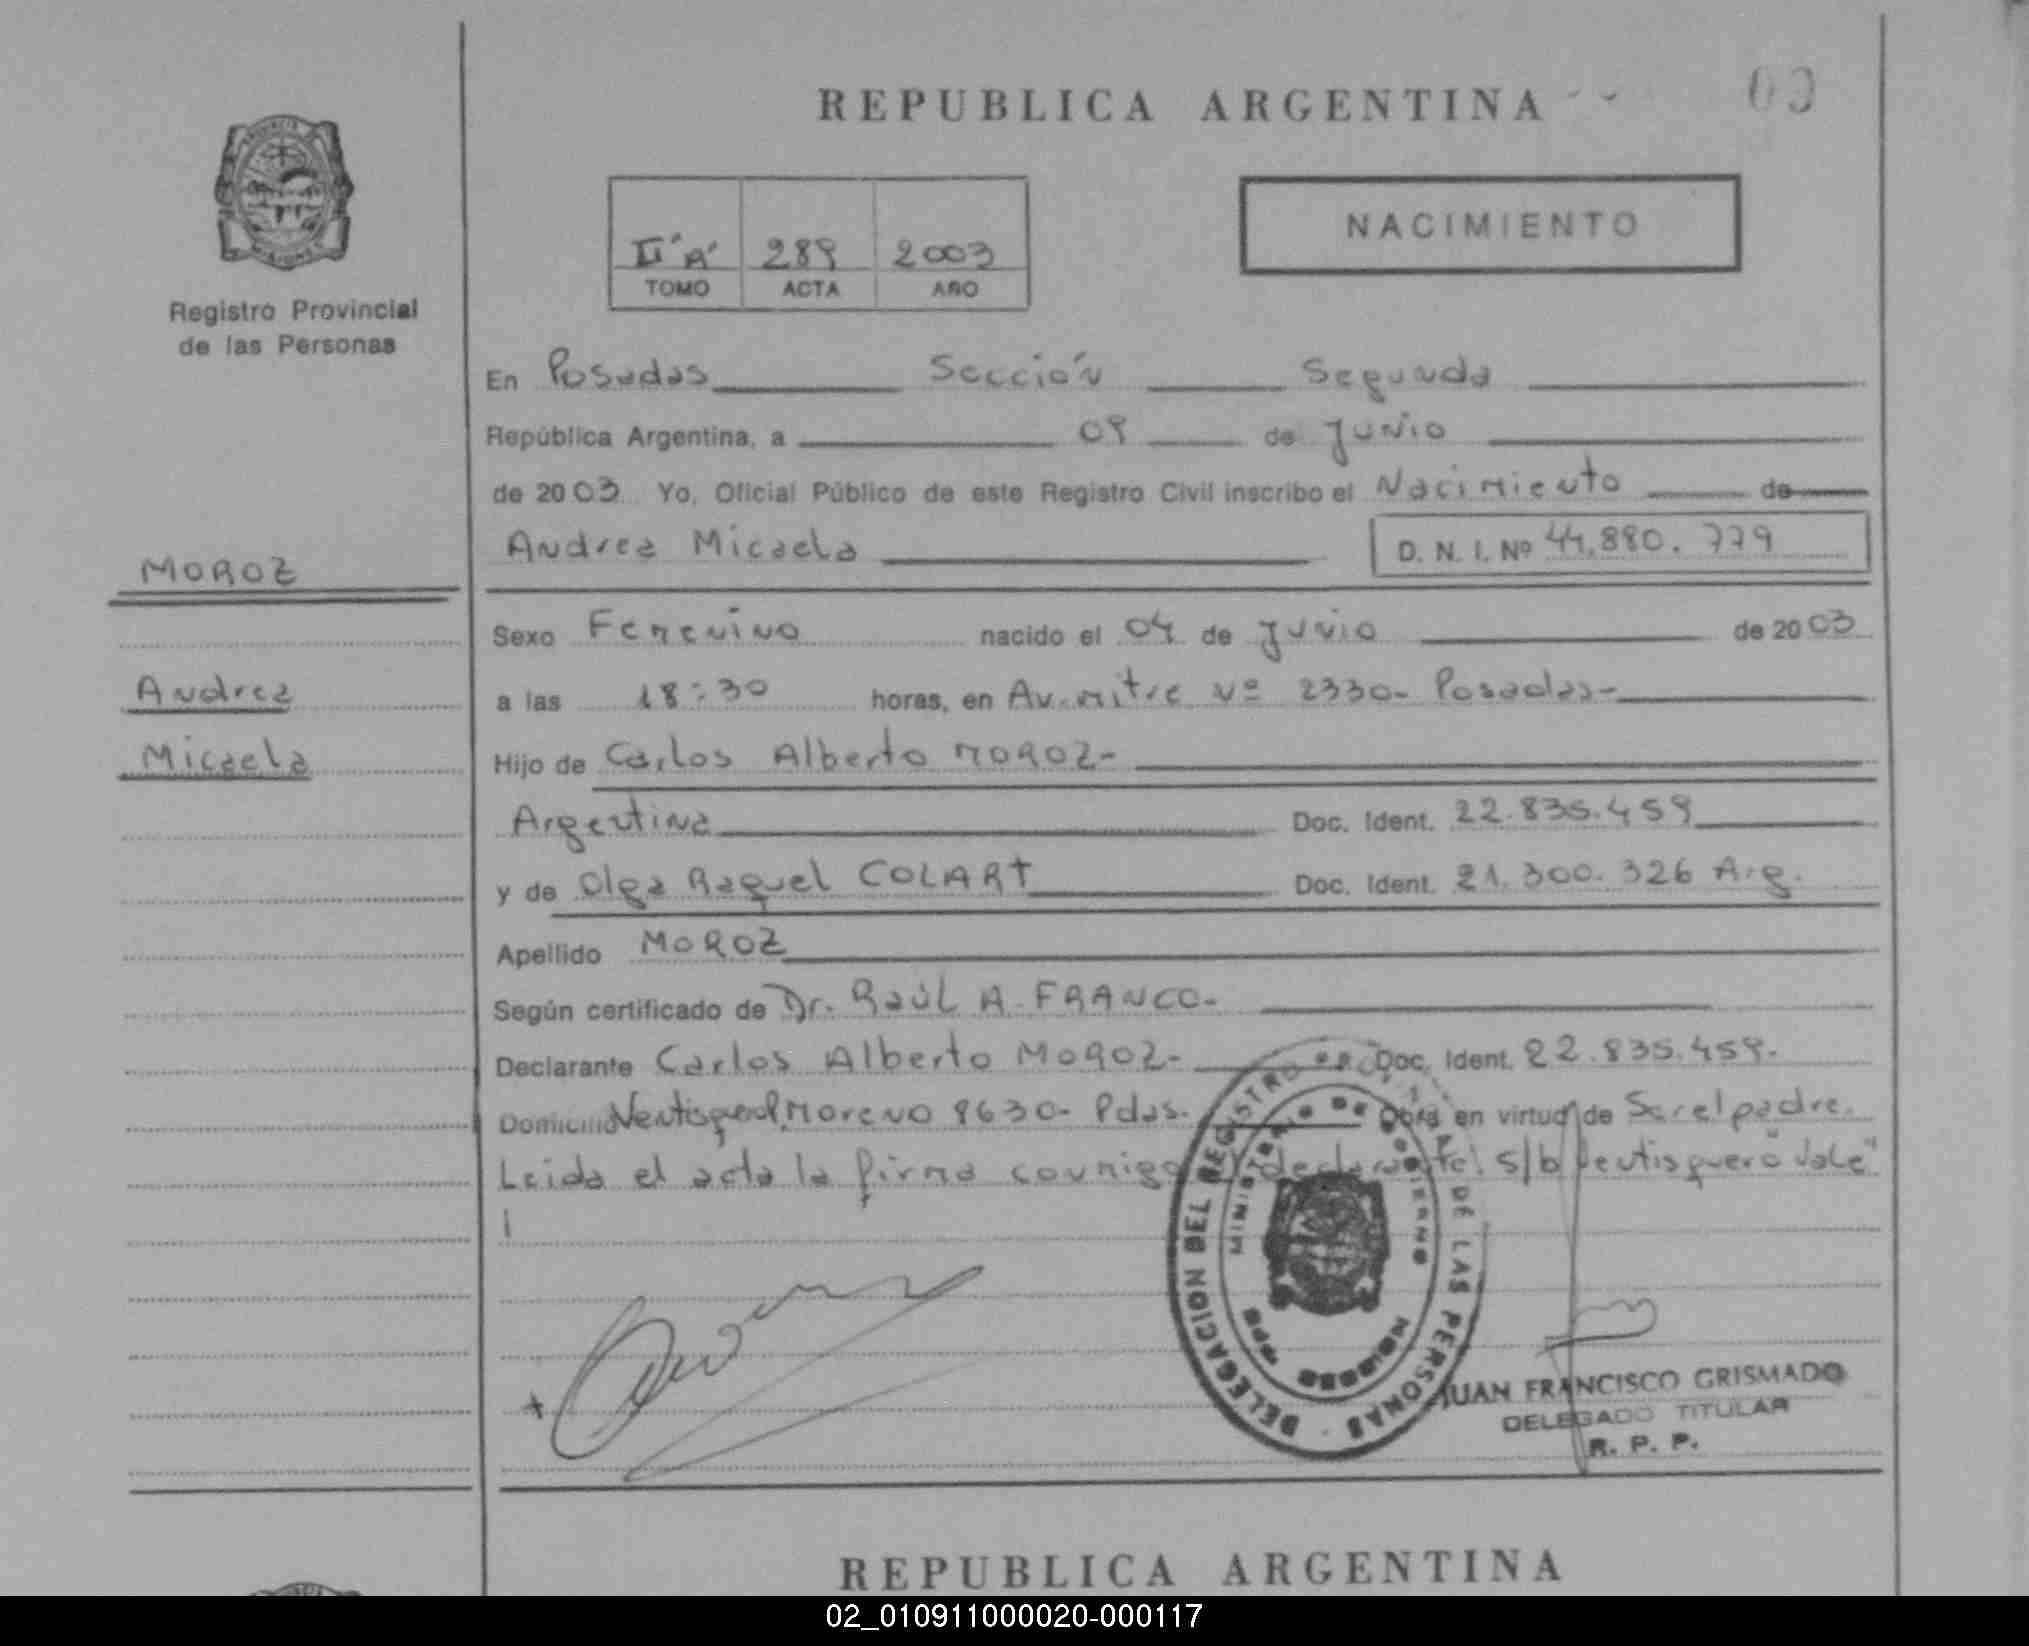 REPUBLICA ARGENTINA
03
NACIMIENTO
II "A" 289 2003
TOMO ACTA AÑO
Registro Provincial
de las Personas
En Posadas Sección Segunda
República Argentina, a 09 de Junio
de 2003 Yo, Oficial Público de este Registro Civil inscribo el Nacimiento de
Andrea Micaela D. N. I. Nº 44.880.779
MOROZ
Sexo Femenino nacido el 04 de Junio de 2003
Andrea
a las 18:30 horas, en Av. mitre Nº 2330- Posadas-
Micaela
Hijo de Carlos Alberto MOROZ-
Argentina Doc. Ident. 22.835.459
y de Olga Raquel COLART Doc. Ident. 21.300.326 Arg.
Apellido MOROZ
Según certificado de Dr. Raúl A. FRANCO-
Declarante Carlos Alberto MOROZ- Doc. Ident. 22.835.459-
Domicilio Moreno 8630- Pdas. Obra en virtud de Ser el padre.
Leida el acta la firma conmigo el declarante. S/b "Ventisquero" Vale"
DELEGACION DEL REGISTRO DE LAS PERSONAS
MINISTERIO DE GOBIERNO
MISIONES
JUAN FRANCISCO GRISMADO
DELEGADO TITULAR
R. P. P.
REPUBLICA ARGENTINA
02_010911000020-000117